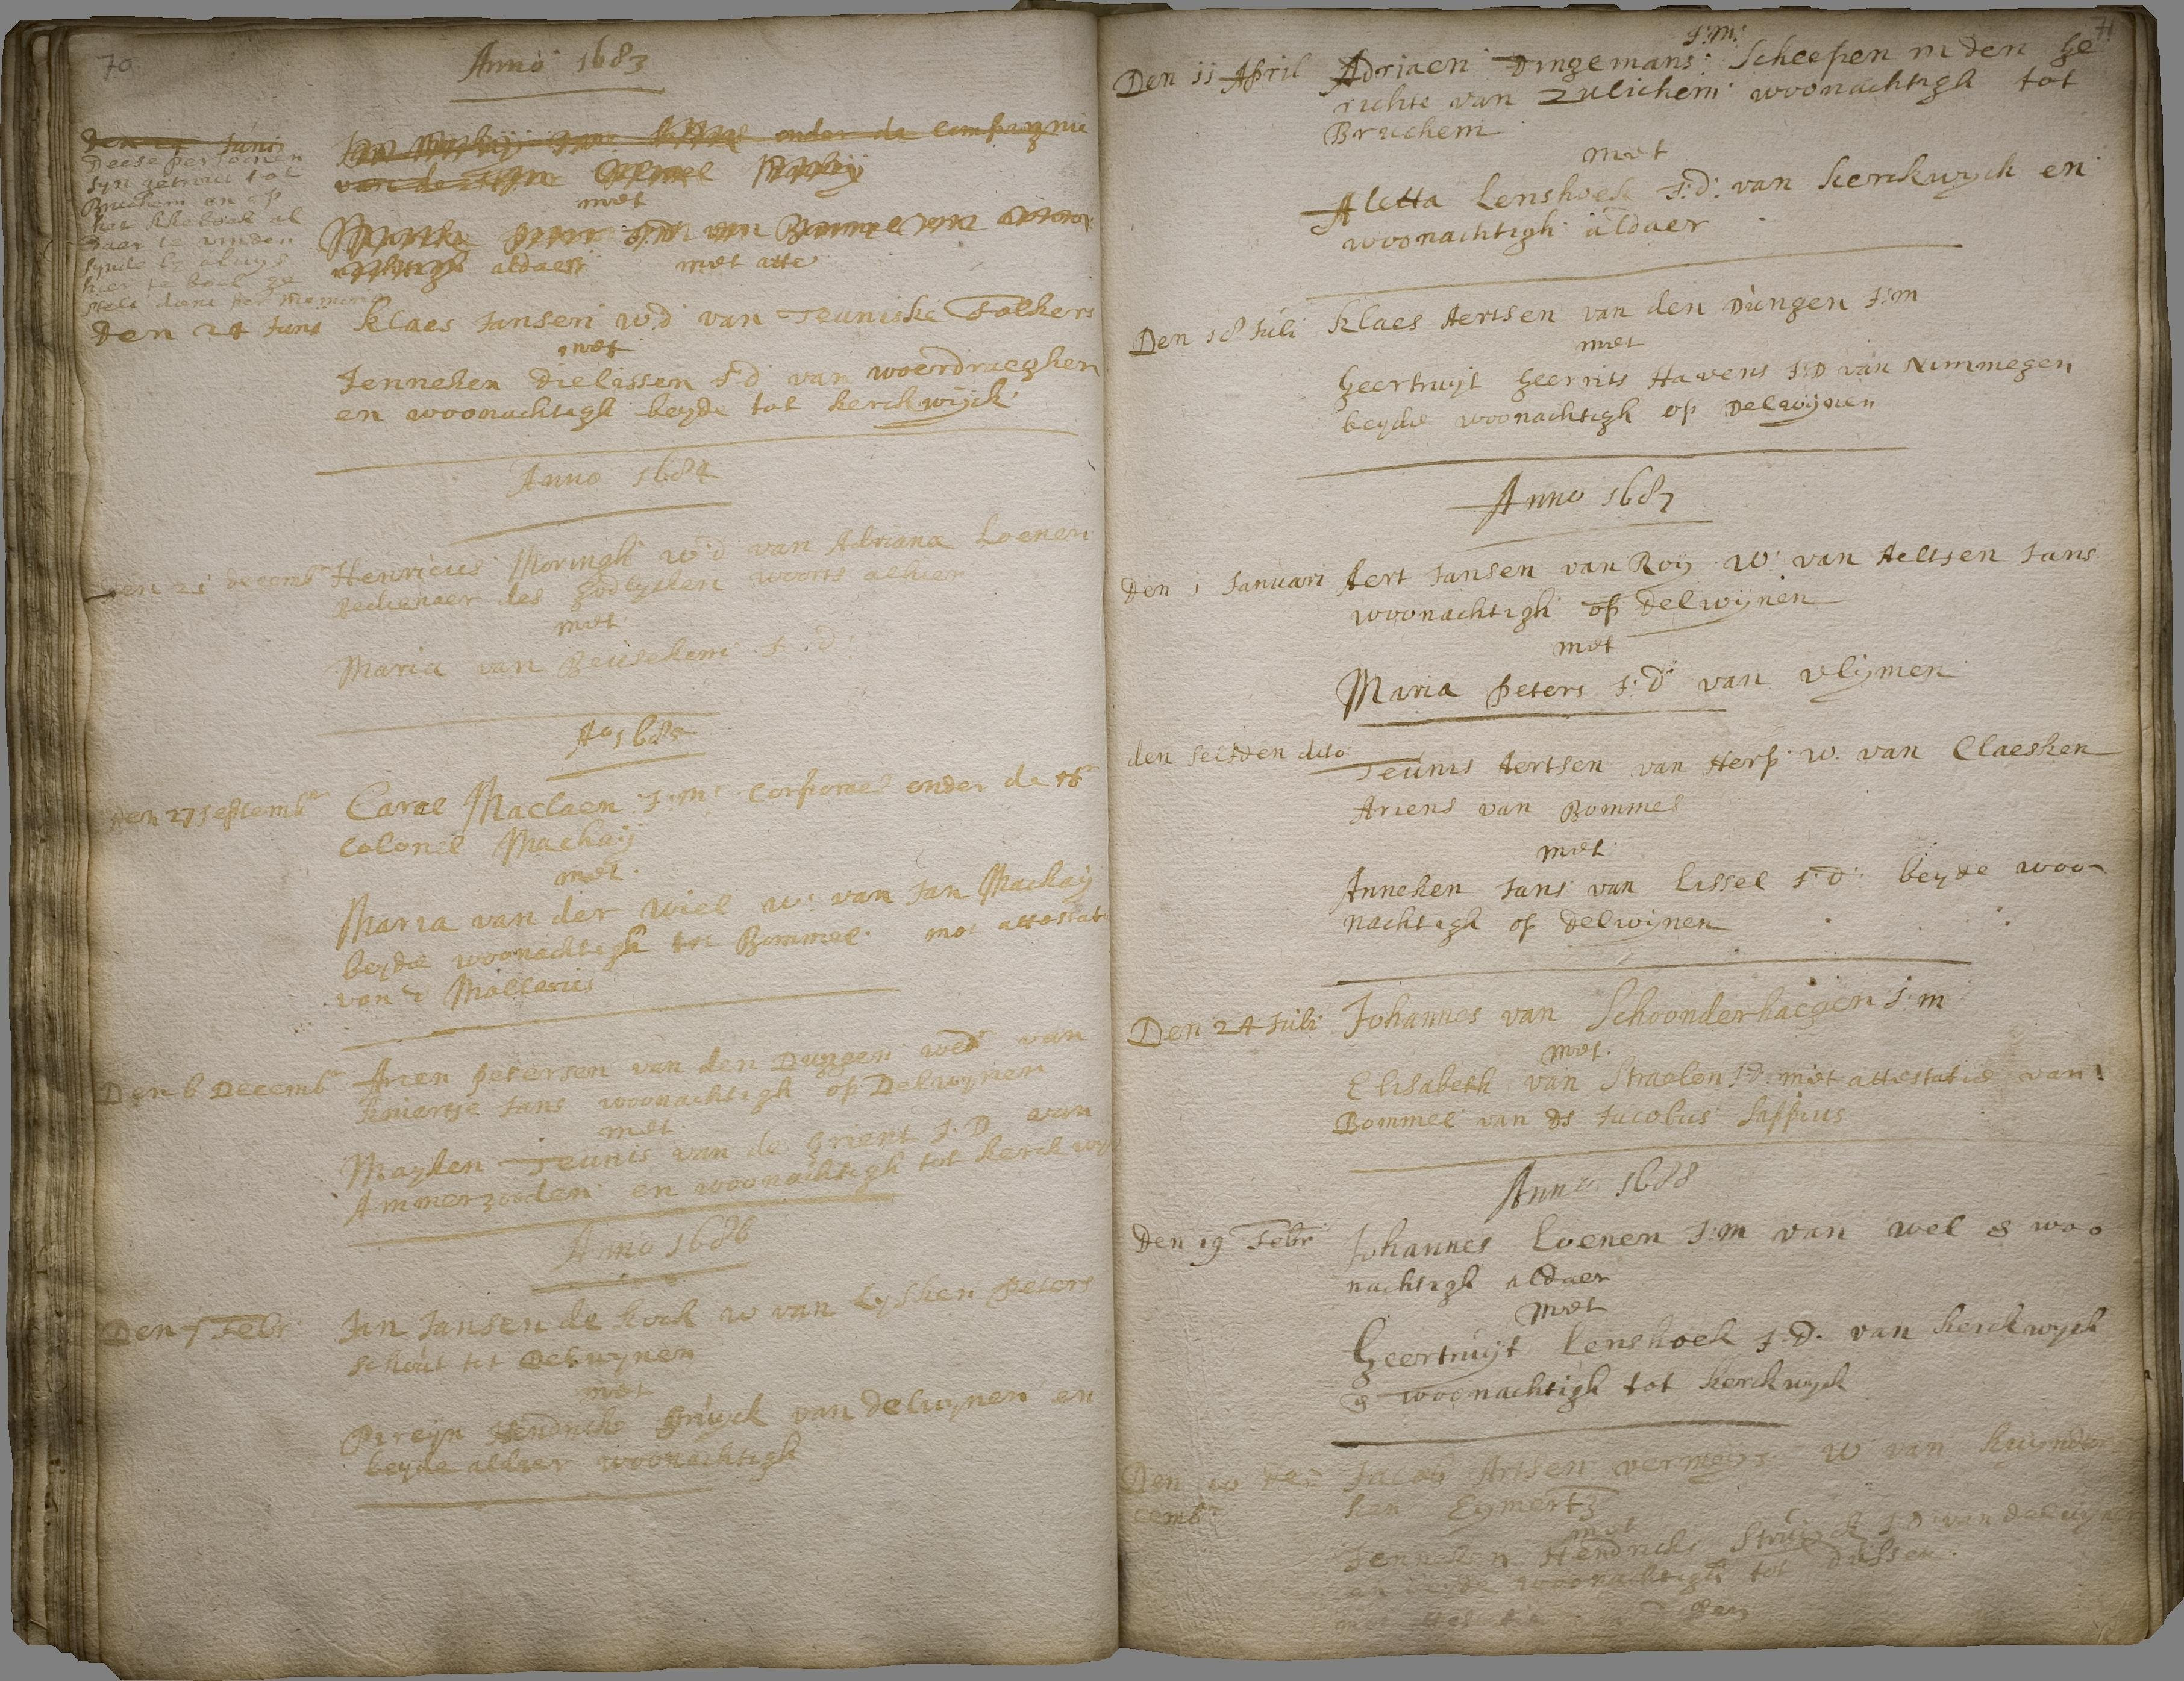 70
Anno 1683
Den 21 Junij
onder de Compagnie
van de
met
van Bommel
aldaer met atte
Deese persoonen
syn getrout tot
Bruchem en op
het boek al
daer te vinden
synde
hier te boek ge
stelt dient per memorie
Den 24 Junij Klaes Jansen wd van Teuniske Folkers
met
Jenneken Dielissen J:d van woerdraeghen
en woonachtigh beyde tot kerckwijck
Anno 1684
Den 21 decembr Henricus Moringh wd van Adriana Loenen
Bedienaer des godlyken woorts alhier
met
Maria van Beusekem J:d
Ao 1685
Den 27 Septembr Carel Maclaen J:m: Corporael onder de Hr
Colonel Mackaij
met
Maria van der Wiel w: van Jan Mackaij
beyde woonachtigh in Bommel met attestati
van D Mollerus
Den 6 Decembr Arien petersen van den Dungen wedr van
Jans woonachtigh op Delwynen
met
Mayken Teunis van de Grient J:D van
Ammerzooden en woonachtigh tot kerckwy
Anno 1686
Den 7 Febr: Jan Jansen de kock w van Lysken Peters
schout tot Delwynen
met
Pireyn Hendricks Struyck van delwynen en
beyde aldaer woonachtigh
71
Den 11 April Adriaen Dingemans J:m: Scheepen in den ge
richte van Zulichem woonachtigh tot
Bruchem
met
Aletta Lenshoek J:d: van kerckwyck en
woonachtigh aldaer
Den 18 Juli Klaes Aertsen van den Dungen J:m
met
Geertruyt Geerrits Havens J:D van Nimmegen
beyde woonachtigh op Delwijnen
Anno 1687
Den 1 Januari Aert Jansen van Roy w: van Aeltjen Jans
woonachtigh op Delwijnen
met
Maria peters J:d van vlijmen
den selfden dito Teunis Aertsen van Herp w. van Claesken
Ariens van Bommel
met
Anneken Jans van Lissel J:d: beyde woo-
nachtigh op delwijnen
Den 24 Juli Johannes van Schoonderhaegen J:m
met
Elisabeth van Straelen J:d: met attestatie van
Bommel van ds Jacobus Lappius
Anno 1688
Den 19 Febr Johannes Loenen J:m van wel & woo
nachtigh aldaer
met
Geertruijt Lenshoek J:d. van kerckwyck
& woonachtigh tot kerckwyck
Den 10 de- Jacob Artsen vermeijs w van
cembr ken Eymertz
met
Jenneken Hendricks Struyck J D van delwynen
en beyde woonachtigh tot dussen